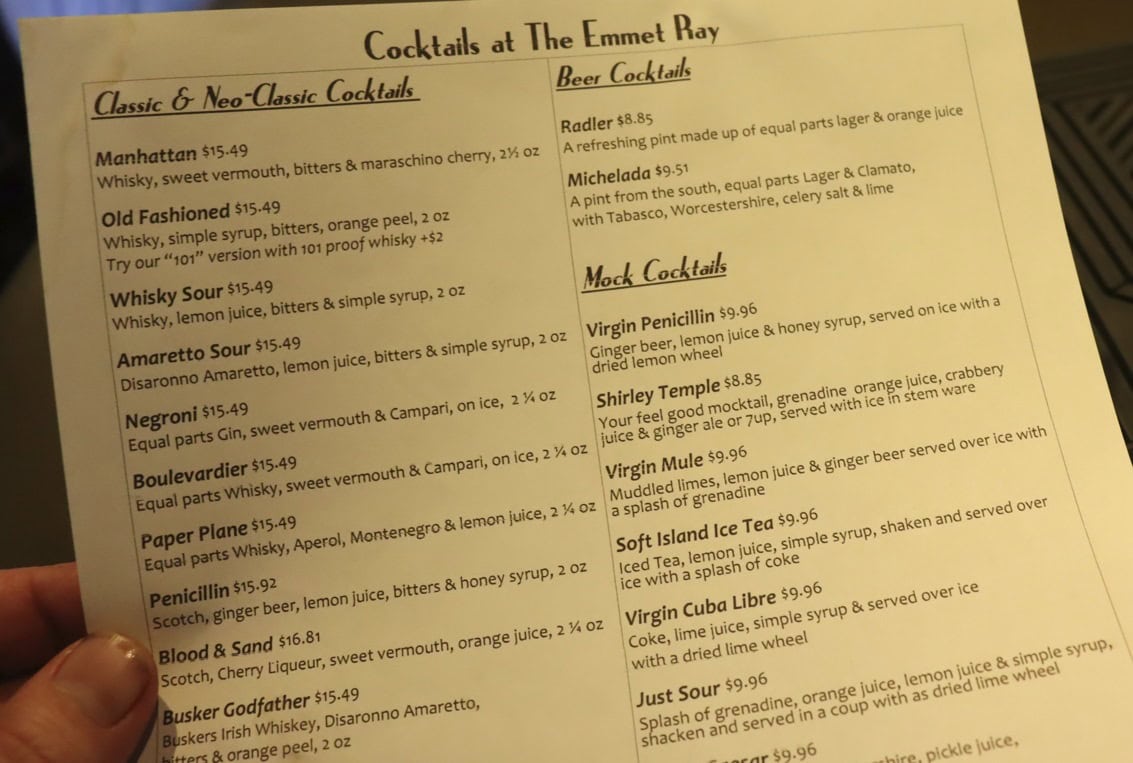 Cocktails at The Emmet Ray
Classic & Neo-Classic Cocktails
Manhattan $15.49
Whisky, sweet vermouth, bitters & maraschino cherry, 2½ oz
Old Fashioned $15.49
Whisky, simple syrup, bitters, orange peel, 2 oz
Try our “101” version with 101 proof whisky +$2
Whisky Sour $15.49
Whisky, lemon juice, bitters & simple syrup, 2 oz
Amaretto Sour $15.49
Disaronno Amaretto, lemon juice, bitters & simple syrup, 2 oz
Negroni $15.49
Equal parts Gin, sweet vermouth & Campari, on ice, 2 ¼ oz
Boulevardier $15.49
Equal parts Whisky, sweet vermouth & Campari, on ice, 2 ¼ oz
Paper Plane $15.49
Equal parts Whisky, Aperol, Montenegro & lemon juice, 2 ¼ oz
Penicillin $15.92
Scotch, ginger beer, lemon juice, bitters & honey syrup, 2 oz
Blood & Sand $16.81
Scotch, Cherry Liqueur, sweet vermouth, orange juice, 2 ¼ oz
Busker Godfather $15.49
Buskers Irish Whiskey, Disaronno Amaretto,
bitters & orange peel, 2 oz
Beer Cocktails
Radler $8.85
A refreshing pint made up of equal parts lager & orange juice
Michelada $9.51
A pint from the south, equal parts Lager & Clamato,
with Tabasco, Worcestershire, celery salt & lime
Mock Cocktails
Virgin Penicillin $9.96
Ginger beer, lemon juice & honey syrup, served on ice with a
dried lemon wheel
Shirley Temple $8.85
Your feel good mocktail, grenadine orange juice, crabbery
juice & ginger ale or 7up, served with ice in stem ware
Virgin Mule $9.96
Muddled limes, lemon juice & ginger beer served over ice with
a splash of grenadine
Soft Island Ice Tea $9.96
Iced Tea, lemon juice, simple syrup, shaken and served over
ice with a splash of coke
Virgin Cuba Libre $9.96
Coke, lime juice, simple syrup & served over ice
with a dried lime wheel
Just Sour $9.96
Splash of grenadine, orange juice, lemon juice & simple syrup,
shacken and served in a coup with as dried lime wheel
$9.96
pickle juice,